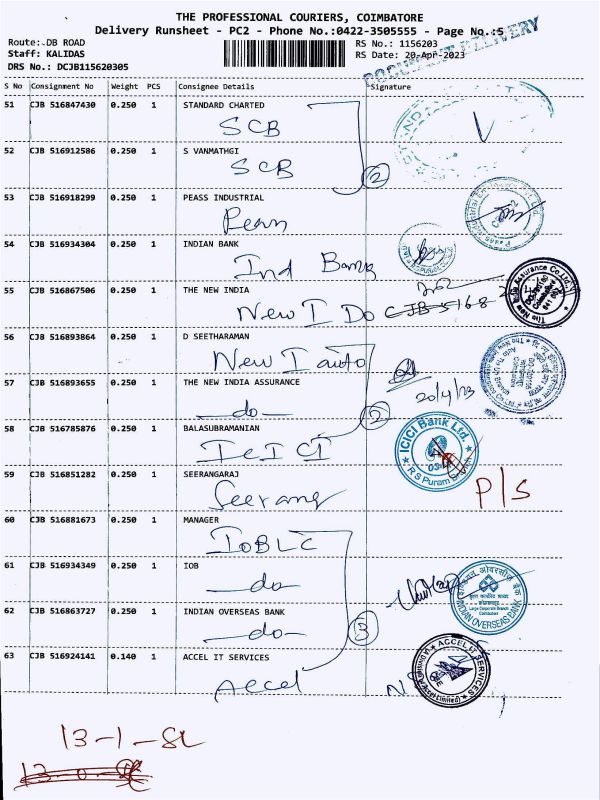 THE PROFESSIONAL COURIERS, COIMBATORE
Delivery Runsheet - PC2 - Phone No.:0422-3505555 - Page No.:5
Route:.DB ROAD RS No.: 1156203
Staff: KALIDAS RS Date: 20-Apr-2023
DRS No.: DCJB115620305
DOCUMENT DELIVERY
S No Consignment No Weight PCS Consignee Details Signature
51 CJB 516847430 0.250 1 STANDARD CHARTED
SCB
52 CJB 516912586 0.250 1 S VANMATHGI
SCB
2
53 CJB 516918299 0.250 1 PEASS INDUSTRIAL
Peass
54 CJB 516934304 0.250 1 INDIAN BANK
Ind Bank
55 CJB 516867506 0.250 1 THE NEW INDIA
New I Do
The New India Assurance Co.Ltd.
56 CJB 516893864 0.250 1 D SEETHARAMAN
New I auto
57 CJB 516893655 0.250 1 THE NEW INDIA ASSURANCE
do
20/4/23
2
58 CJB 516785876 0.250 1 BALASUBRAMANIAN
ICICI
ICICI Bank Ltd.
R S Puram
59 CJB 516851282 0.250 1 SEERANGARAJ
Seerang
P/S
60 CJB 516881673 0.250 1 MANAGER
IOB LC
61 CJB 516934349 0.250 1 IOB
do
INDIAN OVERSEAS BANK
62 CJB 516863727 0.250 1 INDIAN OVERSEAS BANK
do
3
63 CJB 516924141 0.140 1 ACCEL IT SERVICES
Accel
ACCEL IT SERVICES
13-1-SL